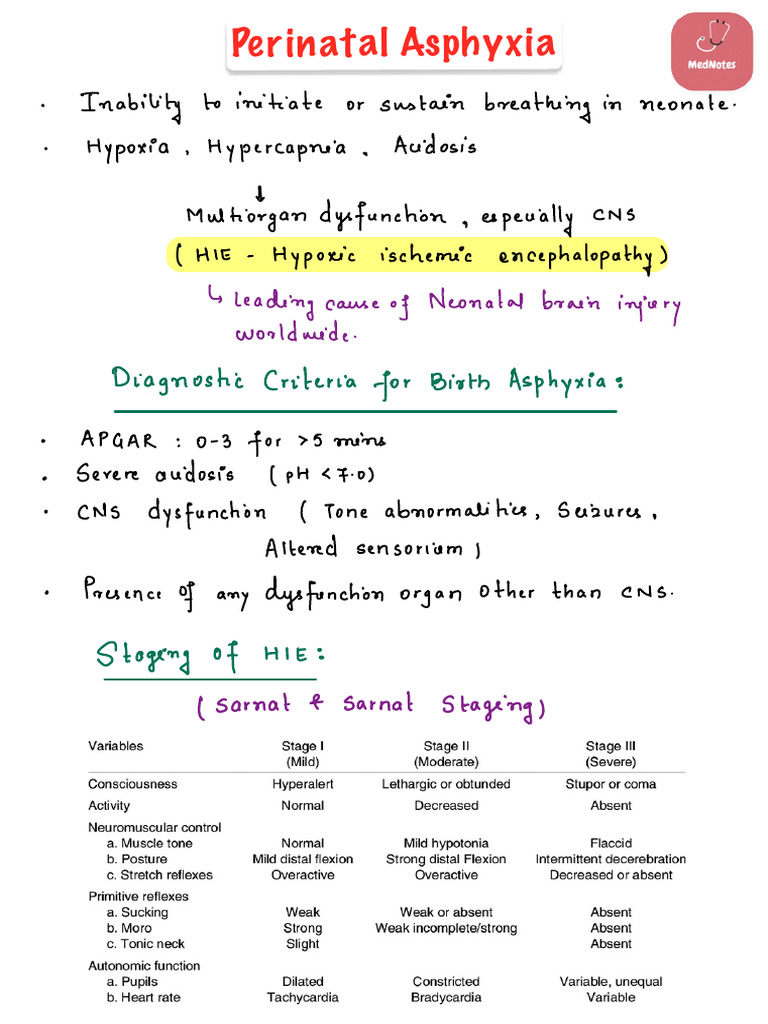 Perinatal Asphyxia
MedNotes
· Inability to initiate or sustain breathing in neonate.
· Hypoxia, Hypercapnia, Acidosis
↓
Multiorgan dysfunction, especially CNS
(HIE - Hypoxic ischemic encephalopathy)
↳ leading cause of Neonatal brain injury
worldwide.
Diagnostic Criteria for Birth Asphyxia:
· APGAR : 0-3 for >5 mins
· Severe acidosis (pH <7.0)
· CNS dysfunction (Tone abnormalities, Seizures,
Altered sensorium)
· Presence of any dysfunction organ other than CNS.
Staging of HIE:
(Sarnat & Sarnat Staging)
Variables Stage I Stage II Stage III
(Mild) (Moderate) (Severe)
Consciousness Hyperalert Lethargic or obtunded Stupor or coma
Activity Normal Decreased Absent
Neuromuscular control
a. Muscle tone Normal Mild hypotonia Flaccid
b. Posture Mild distal flexion Strong distal Flexion Intermittent decerebration
c. Stretch reflexes Overactive Overactive Decreased or absent
Primitive reflexes
a. Sucking Weak Weak or absent Absent
b. Moro Strong Weak incomplete/strong Absent
c. Tonic neck Slight Absent
Autonomic function
a. Pupils Dilated Constricted Variable, unequal
b. Heart rate Tachycardia Bradycardia Variable